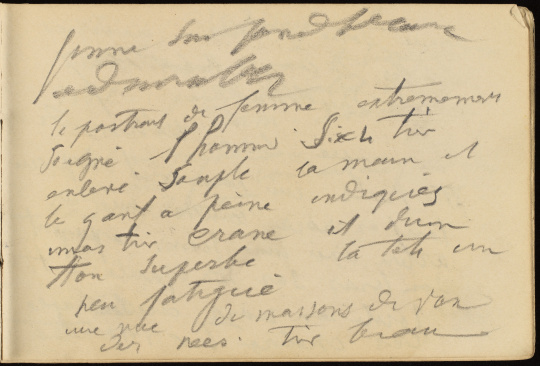 femme sur fond
admirable
le portrait de femme extremement
soigné l'homme Sixte tir
enlevé simple la main et
le gant a peine indiqués
mais tir crane et d'un
ton superbe la tete un
peu fatigué
une rue de maisons de Van
der neer. tir beau